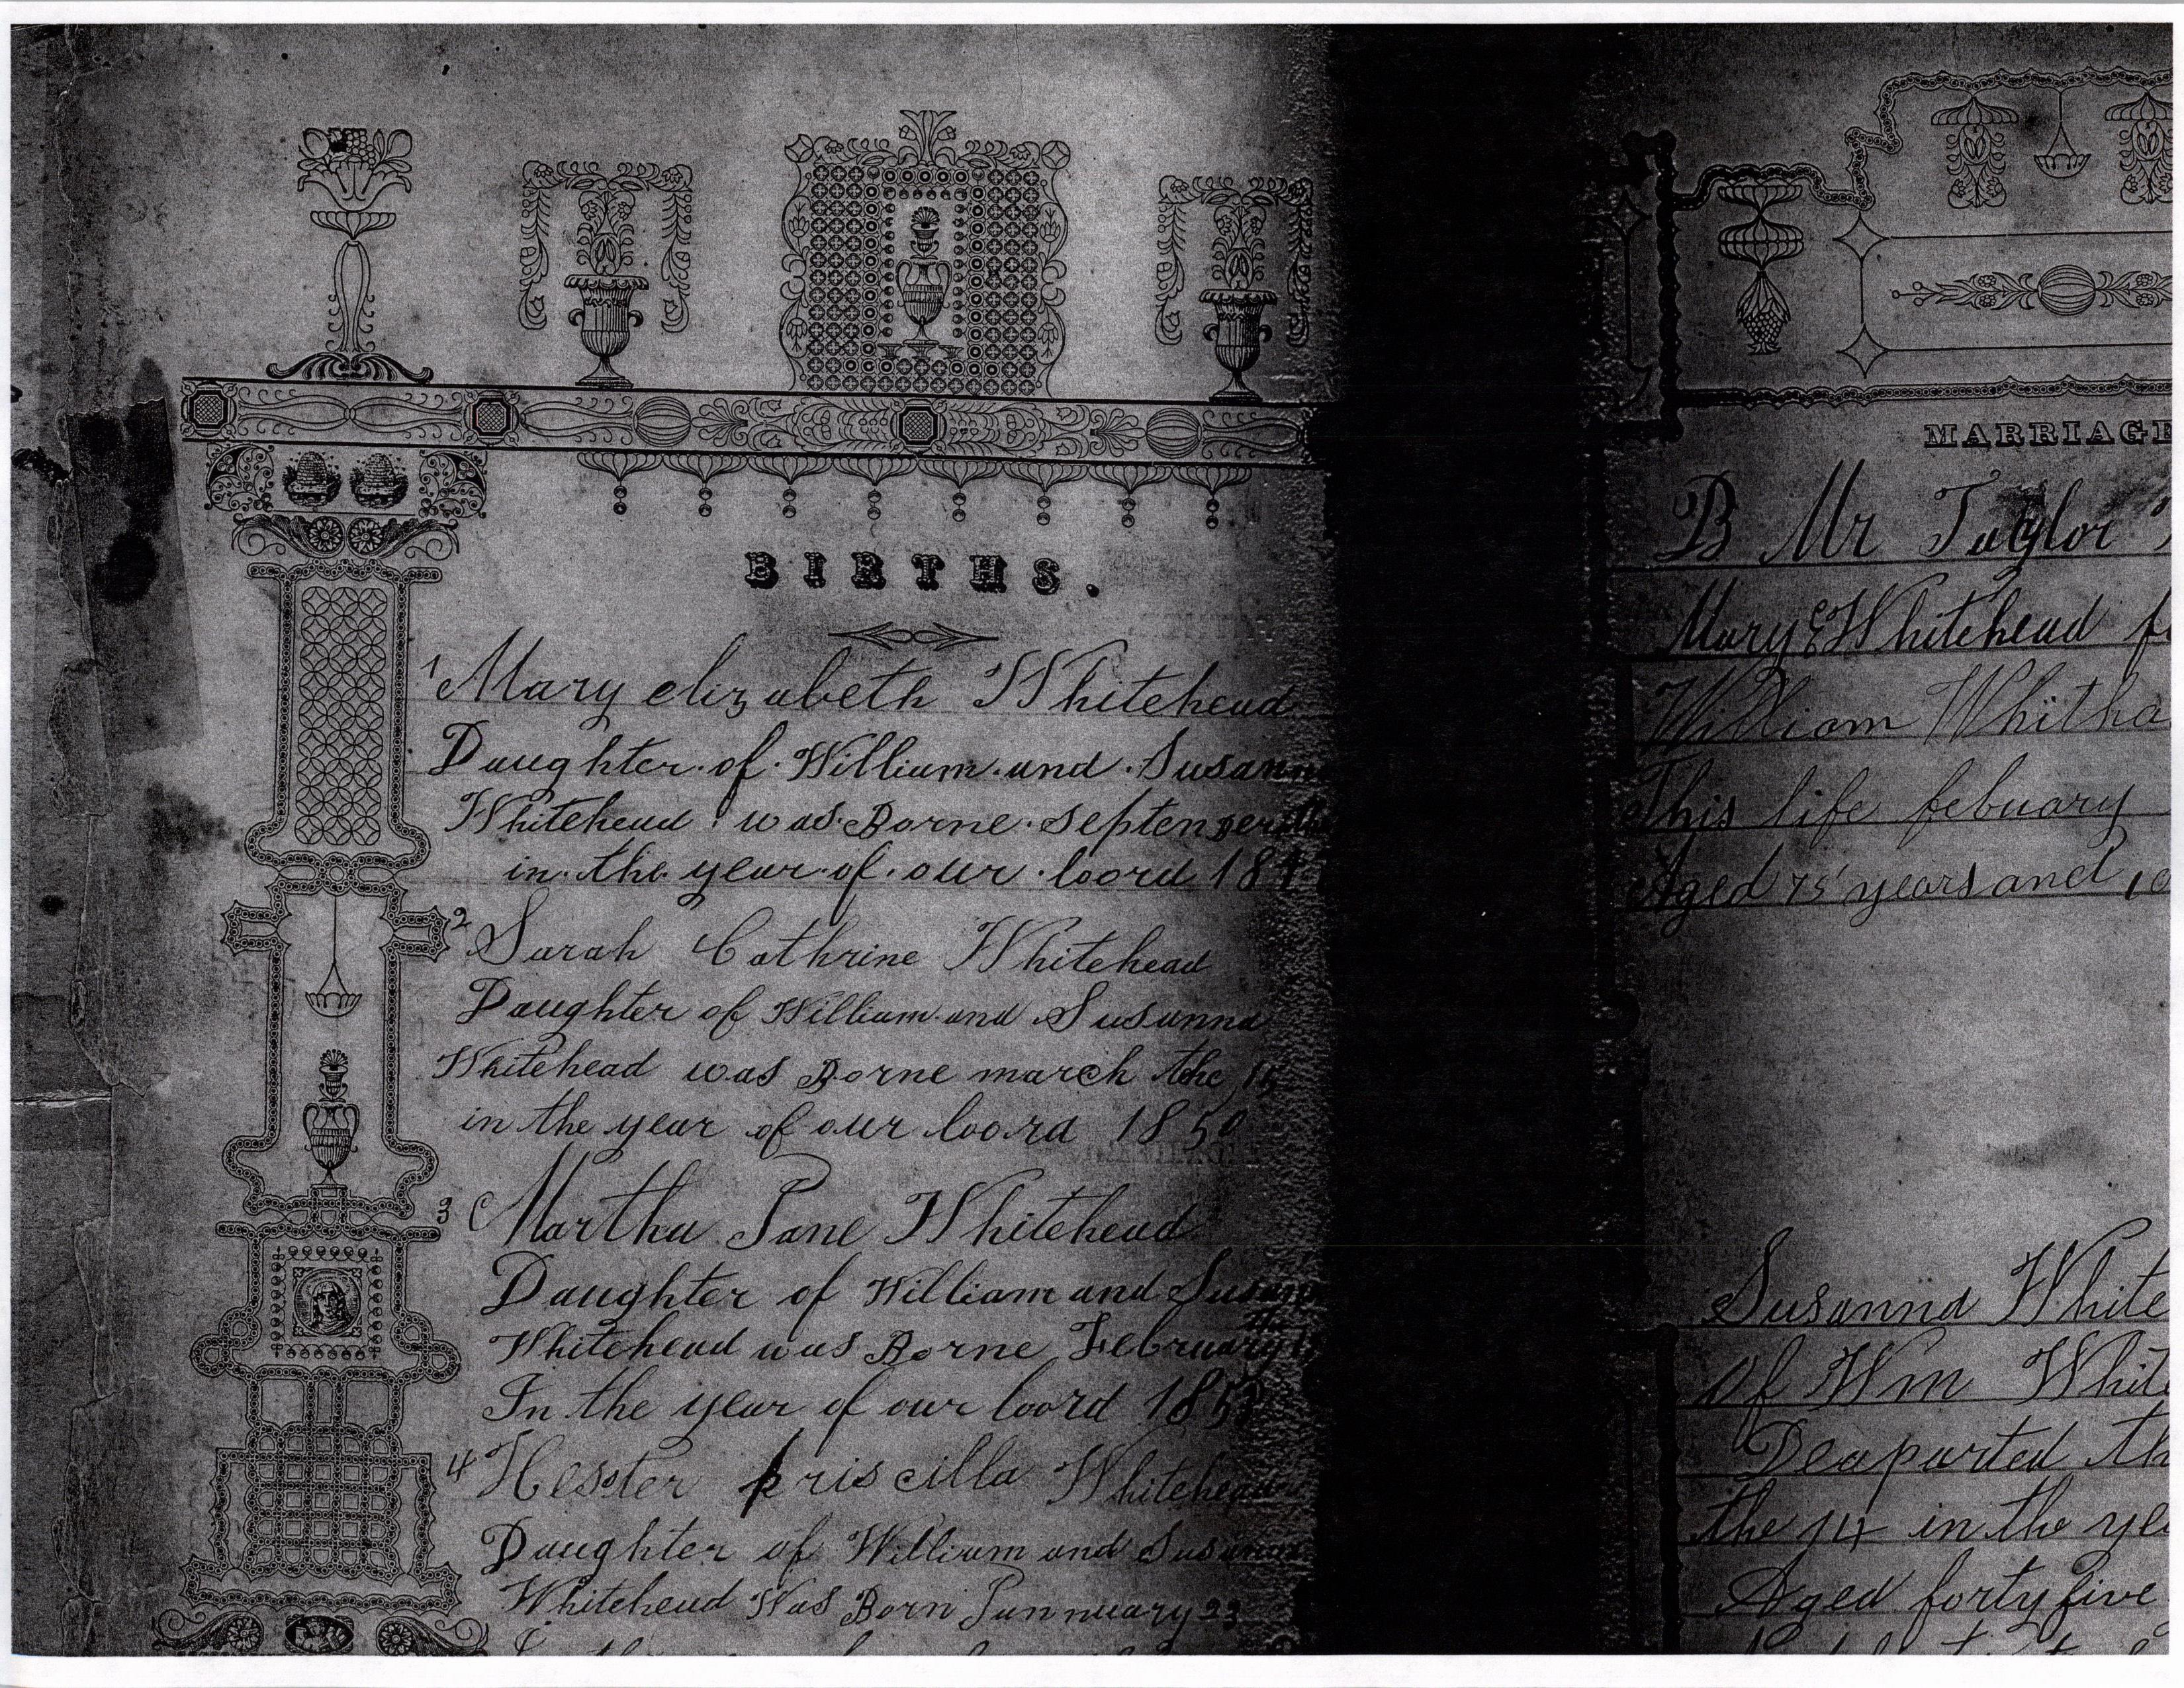 BIRTHS.
1 Mary elizabeth Whitehead
Daughter of William and Susann
Whitehead was Borne september
in the year of our loord 184
2 Sarah Cathrine Whitehead
Daughter of William and Susanna
Whitehead was Borne march the
in the year of our loord 1850
3 Martha Jane Whitehead
Daughter of William and Susan
Whitehead was Borne February
In the year of our loord 185
4 Hester priscilla Whitehead
Daughter of William and Susanna
Whitehead Was Born Jannuary 23
MARRIAGE
B Mr Taylor
Mary E Whitehead
William Whithe
This life febuary
Aged 75 years and 10
Susanna White
of Wm White
Deaparted th
the 14 in the ye
Aged forty five